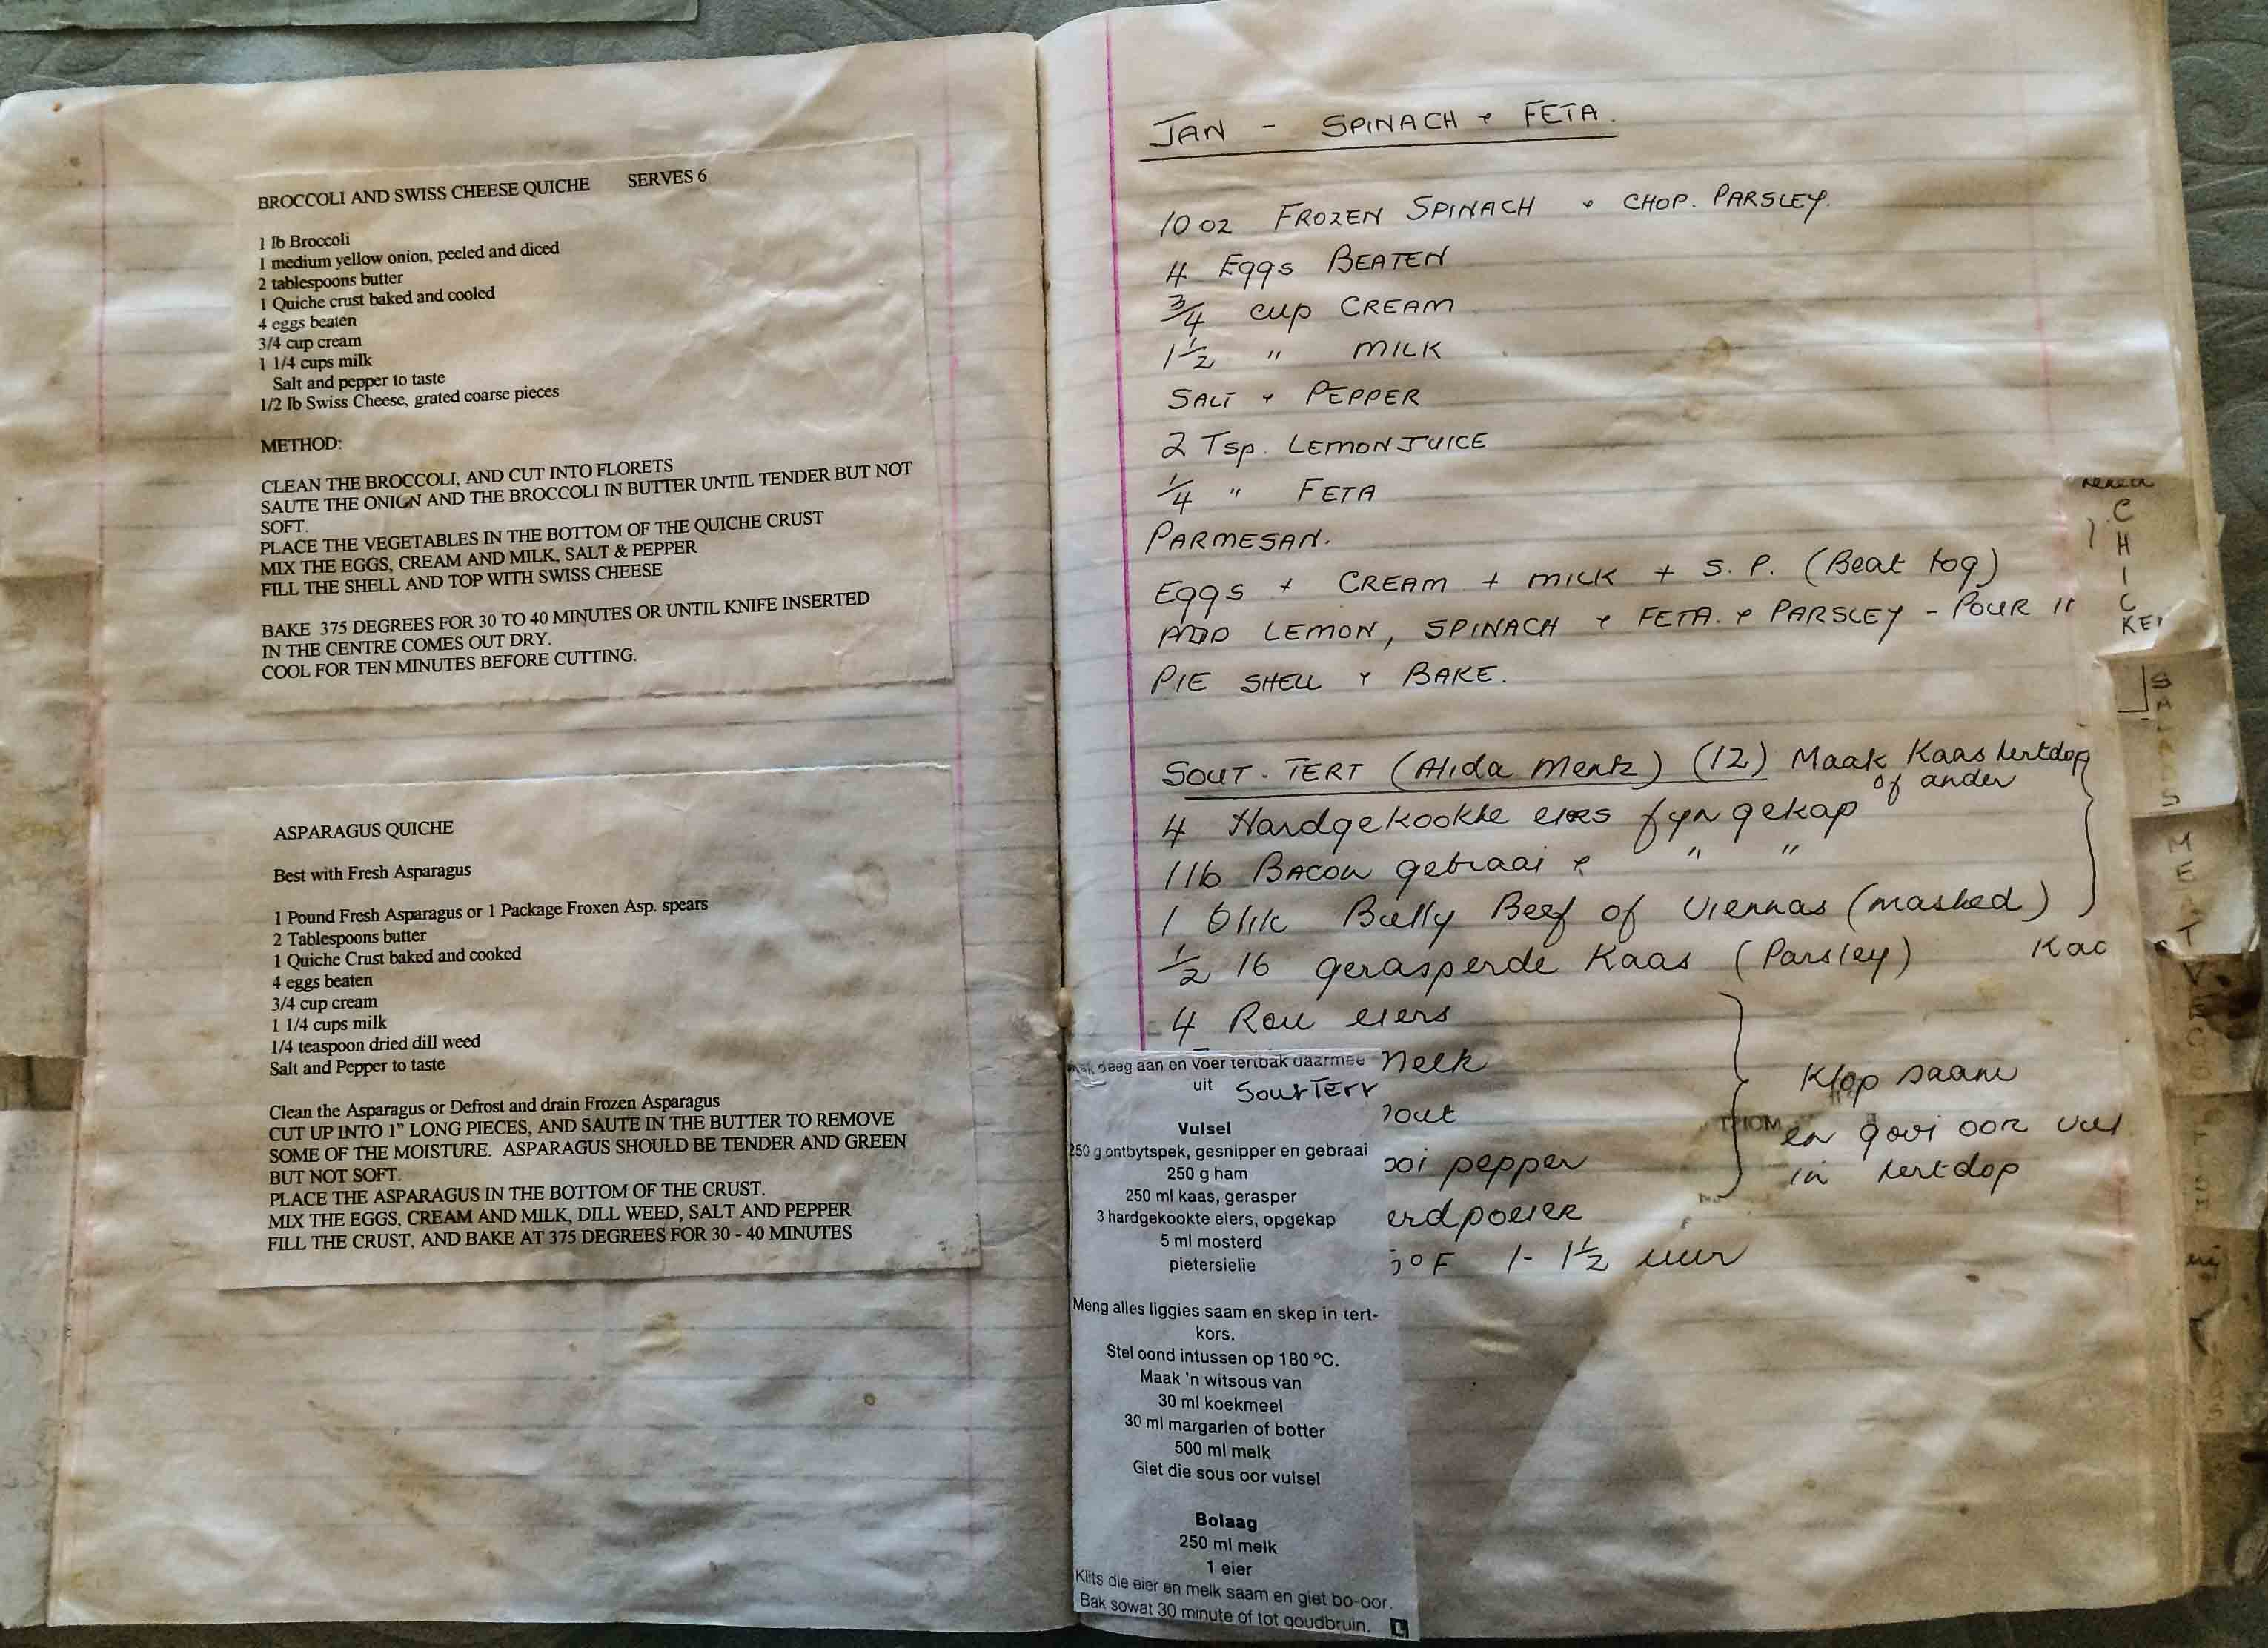 BROCCOLI AND SWISS CHEESE QUICHE SERVES 6
1 lb Broccoli
1 medium yellow onion, peeled and diced
2 tablespoons butter
1 Quiche crust baked and cooled
4 eggs beaten
3/4 cup cream
1 1/4 cups milk
Salt and pepper to taste
1/2 lb Swiss Cheese, grated coarse pieces
METHOD:
CLEAN THE BROCCOLI, AND CUT INTO FLORETS
SAUTE THE ONION AND THE BROCCOLI IN BUTTER UNTIL TENDER BUT NOT
SOFT.
PLACE THE VEGETABLES IN THE BOTTOM OF THE QUICHE CRUST
MIX THE EGGS, CREAM AND MILK, SALT & PEPPER
FILL THE SHELL AND TOP WITH SWISS CHEESE
BAKE 375 DEGREES FOR 30 TO 40 MINUTES OR UNTIL KNIFE INSERTED
IN THE CENTRE COMES OUT DRY.
COOL FOR TEN MINUTES BEFORE CUTTING.
ASPARAGUS QUICHE
Best with Fresh Asparagus
1 Pound Fresh Asparagus or 1 Package Froxen Asp. spears
2 Tablespoons butter
1 Quiche Crust baked and cooked
4 eggs beaten
3/4 cup cream
1 1/4 cups milk
1/4 teaspoon dried dill weed
Salt and Pepper to taste
Clean the Asparagus or Defrost and drain Frozen Asparagus
CUT UP INTO 1" LONG PIECES, AND SAUTE IN THE BUTTER TO REMOVE
SOME OF THE MOISTURE. ASPARAGUS SHOULD BE TENDER AND GREEN
BUT NOT SOFT.
PLACE THE ASPARAGUS IN THE BOTTOM OF THE CRUST.
MIX THE EGGS, CREAM AND MILK, DILL WEED, SALT AND PEPPER
FILL THE CRUST, AND BAKE AT 375 DEGREES FOR 30 - 40 MINUTES
JAN - SPINACH & FETA.
10 oz FROZEN SPINACH & CHOP. PARSLEY.
4 Eggs BEATEN
3/4 cup CREAM
1 1/2 " MILK
SALT & PEPPER
2 Tsp. LEMON JUICE
1/4 " FETA
PARMESAN.
Eggs + CREAM + MILK + S.P. (Beat tog)
ADD LEMON, SPINACH & FETA. & PARSLEY - POUR
PIE SHELL & BAKE.
SOUT-TERT (Alida Mentz) (12) Maak Kaas tertdop
of ander
4 Hardgekookte eiers fyn gekap
1 lb BACON gebraai & " "
1 Blik Bully Beef of Viennas (mashed)
1/2 lb gerasperde Kaas (Parsley)
4 Rou eiers
melk
sout
ooi pepper
erdpoeier
°F 1 - 1 1/2 uur
Klop saam
en gooi oor vul
in tertdop
deeg aan en voer tertbak daarmee
uit SoutTert
Vulsel
250 g ontbytspek, gesnipper en gebraai
250 g ham
250 ml kaas, gerasper
3 hardgekookte eiers, opgekap
5 ml mosterd
pietersielie
Meng alles liggies saam en skep in tert-
kors.
Stel oond intussen op 180 °C.
Maak 'n witsous van
30 ml koekmeel
30 ml margarien of botter
500 ml melk
Giet die sous oor vulsel
Bolaag
250 ml melk
1 eier
Klits die eier en melk saam en giet bo-oor.
Bak sowat 30 minute of tot goudbruin. L
CHICKEN
SALADS